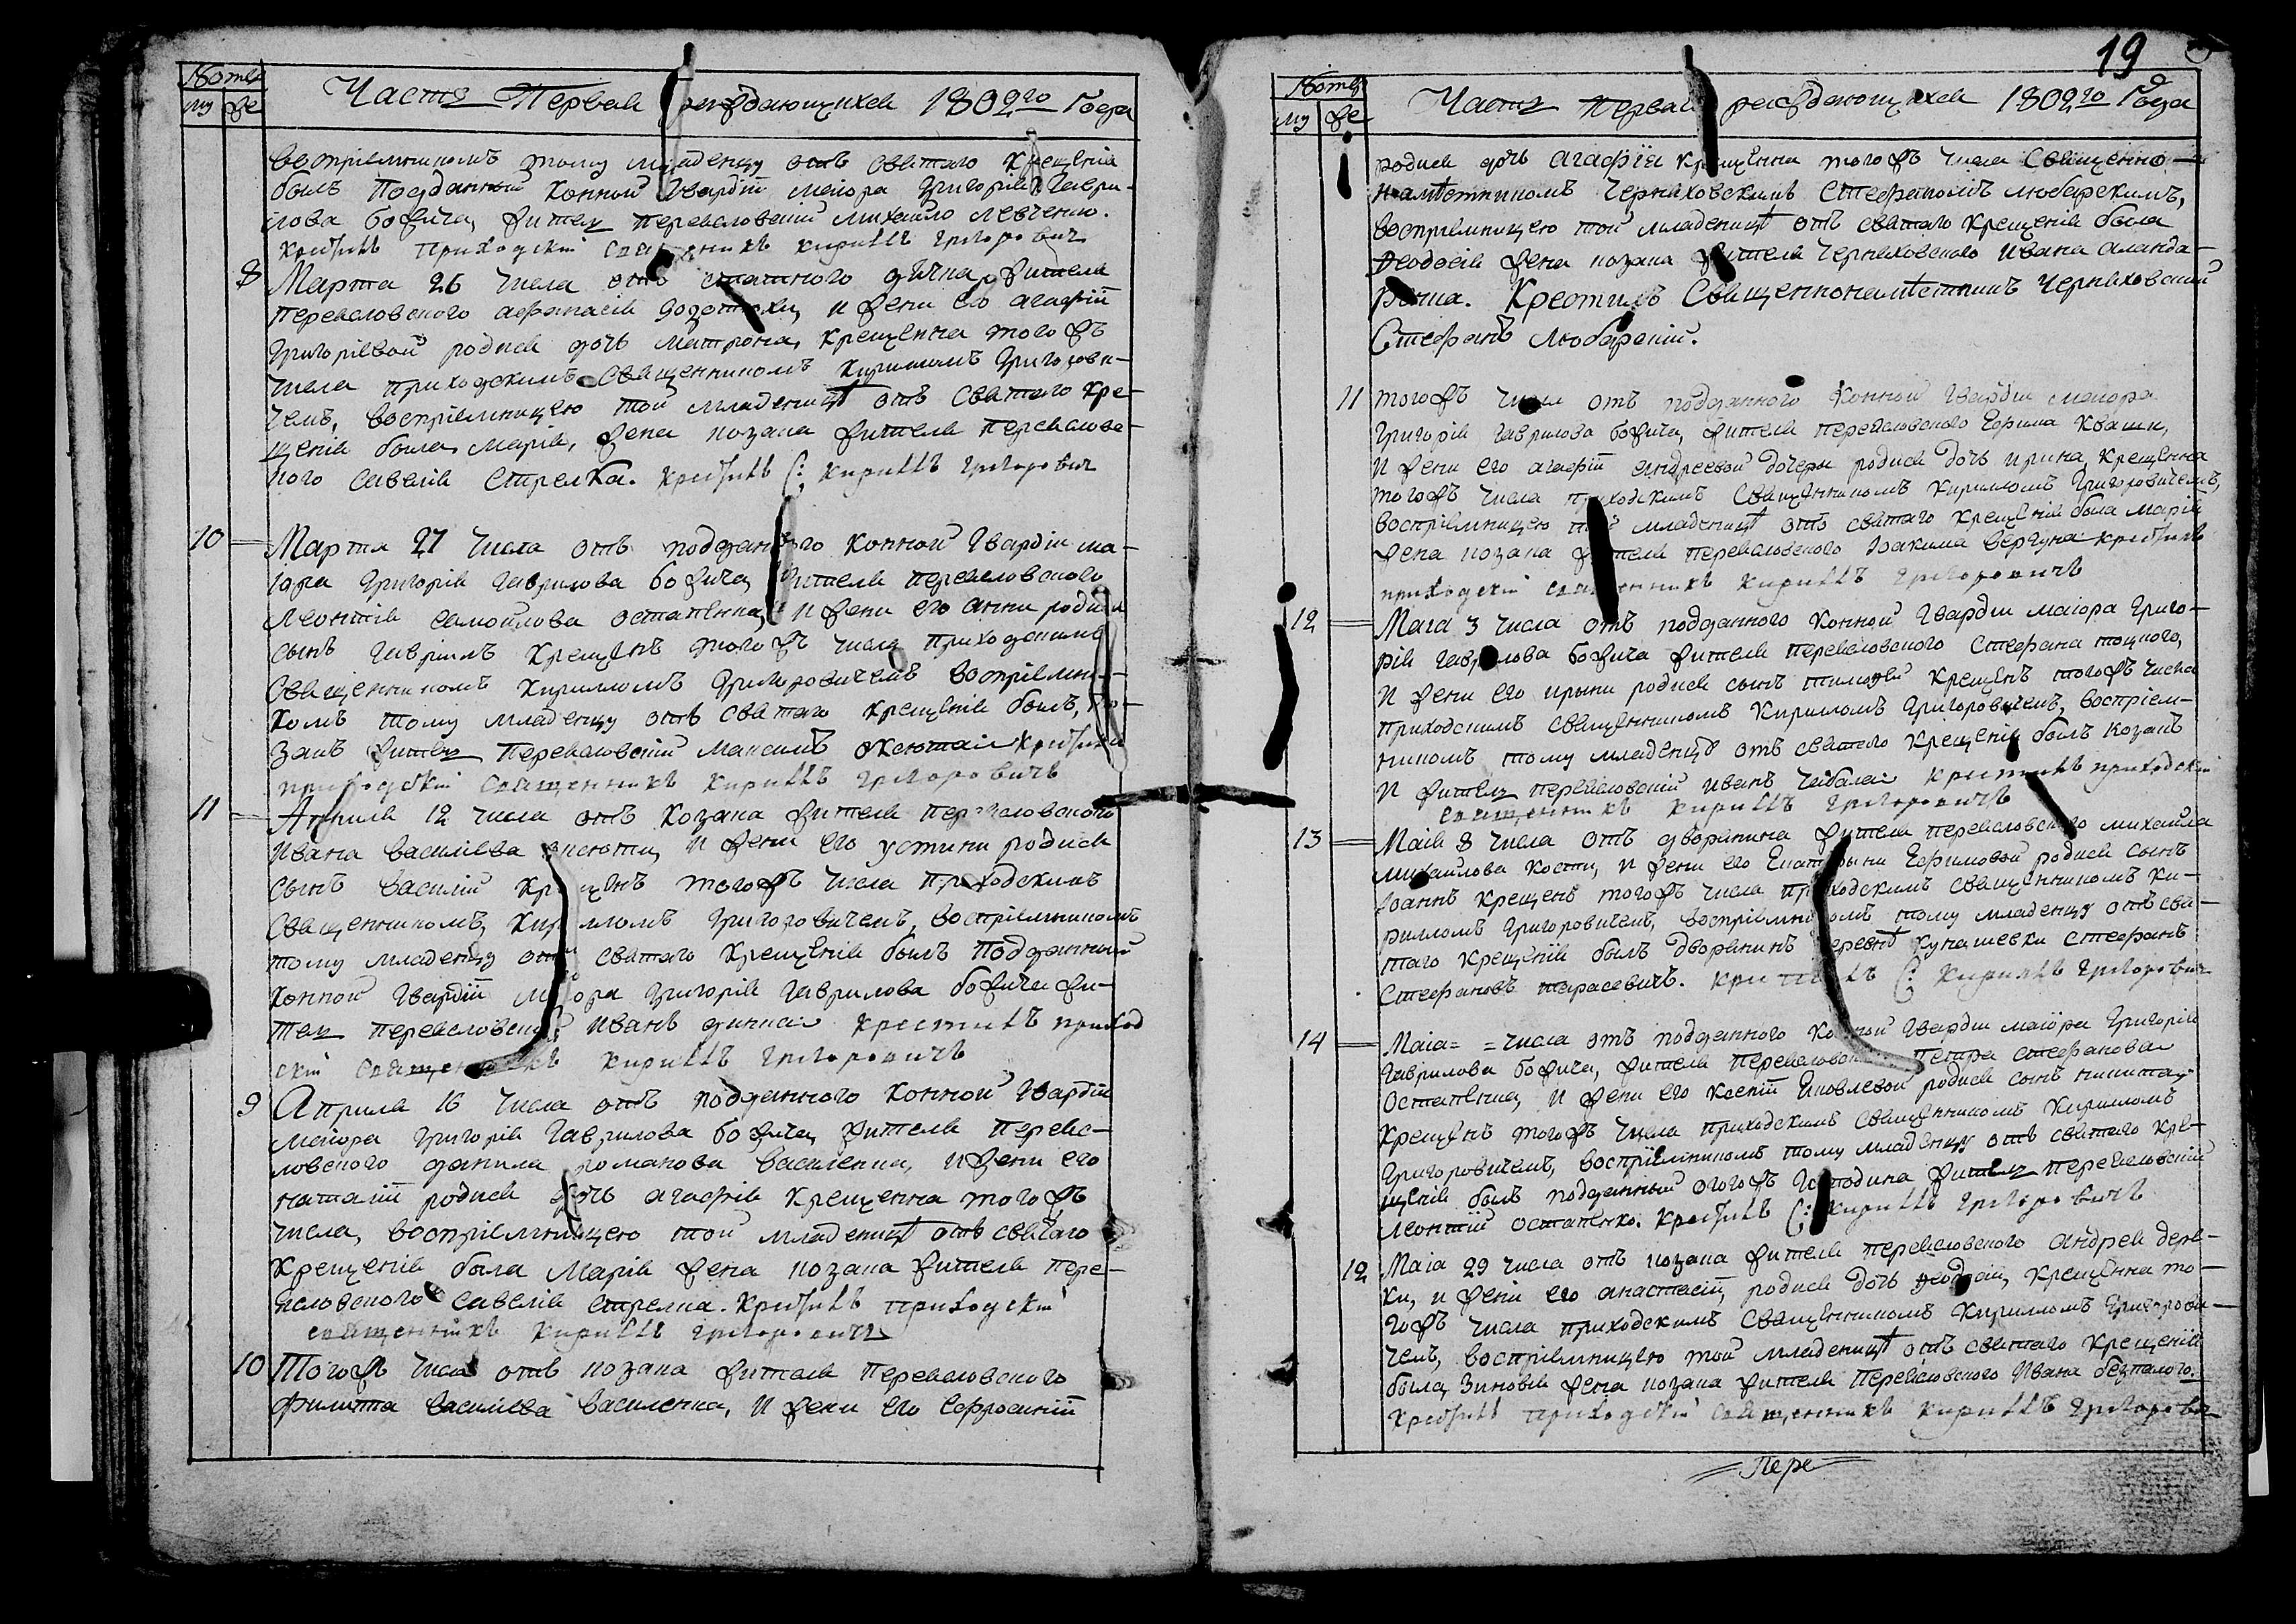 Часть Первая раждающихся 1802го Года
му же
воспріемникомъ тому младенцу отъ святаго крещенія
былъ Подданный Конной Гвардіи маіора Григорія Гаври-
лова божича, житель переяловскій михайло левченко.
крестилъ приходскій священникъ кириллъ григоровичъ
8 Марта 26 числа отъ дячка, жителя
переяловского афанасія и жени его агафіи
Григоріевой родися дочь матрона, крещенна тогожъ
числа приходскимъ священникомъ Кириломъ Григорови-
чемъ, воспріемницею той младеницѣ отъ святаго кре-
щенія была марія, жена козака жителя переялов-
ского савелія стрелка. крестилъ С: кириллъ григоровичъ
10 Марта 27 числа отъ подданного Конной Гвардіи ма-
іора Григорія Гаврилова божича, жителя переяловского
Леонтія самойлова остапенка, и жени его анни родися
сынъ Гавріилъ крещенъ тогожъ числа приходскимъ
священникомъ Кирилломъ Григоровичемъ воспріемни-
комъ тому младенцу отъ святаго крещенія былъ, ко-
закъ житель переяловскій максимъ крестилъ
приходскій священникъ кириллъ григоровичъ
11 Априля 12 числа отъ козака жителя переяловского
Ивана василіева и жени его устини родися
сынъ василій крещенъ тогожъ числа приходскимъ
священникомъ, Кирилломъ Григоровичемъ, воспріемникомъ
тому младенцу отъ святаго крещенія былъ подданный
конной гвардіи маіора Григорія Гаврилова божича жи-
тель переяловскій Иванъ крестилъ приход
скій священникъ кириллъ григоровичъ
9 Априля 16 числа отъ подданного Конной Гвардіи
маіора Григорія Гаврилова божича, жителя перея-
ловского данила романова василенка, и жени его
наталіи родися дочь агафія крещенна тогожъ
числа, воспріемницею той младеницѣ отъ святаго
крещенія была Марія жена козака жителя пере-
яловского савелія стрелка. крестилъ приходскій
священникъ кириллъ григоровичъ
10 Тогожъ числа отъ козака жителя переяловского
Филиппа василіева василенка, и жени его Евфросиніи
19
му же
Часть первая раждающихся 1802го Года
родися дочь агафія крещенна тогожъ числа священно-
намѣстникомъ черняховскимъ Стефаномъ любарскимъ,
воспріемницею той младеницѣ отъ святаго крещенія была
Ѳеодосія жена козака жителя черняховского ивана
Крестилъ Священнонамѣстникъ черняховскій
Стефанъ любарскій.
11 тогожъ числа отъ подданного Конной Гвардіи маіора
Григорія Гаврилова божича, жителя переяловского Ефима Кваши,
и жени его агафіи андреевой дочери родися дочь ирина, крещенна
тогожъ числа приходскимъ священникомъ Кириломъ Григоровичемъ,
воспріемницею той младеницѣ отъ святаго крещенія была марія
жена козака жителя переяловского Іоакима вергуна крестилъ
приходскій священникъ кириллъ григоровичъ
12 Маіа 3 числа отъ подданного Конной Гвардіи маіора Григо-
рія Гаврилова божича жителя переяловского Стефана
и жени его ирыни родися сынъ тимоѳей крещенъ тогожъ числа
приходскимъ священникомъ Кириломъ Григоровичемъ, воспріем-
никомъ тому младенцу отъ святаго крещенія былъ козакъ
и житель переяловскій иванъ крестилъ приходскій
священникъ кириллъ григоровичъ
13 Маія 8 числа отъ дворянина жителя переяловского михаила
михайлова и жени его Екатерыни Ефимовой родися сынъ
Іоаннъ крещенъ тогожъ числа приходскимъ священникомъ Ки-
рилломъ Григоровичемъ, воспріемникомъ тому младенцу отъ свя-
таго крещенія былъ дворянинъ деревнѣ кунашевки стефанъ
Стефановъ тарасевичъ. крестилъ С: кириллъ григоровичъ
14 Маіа= =числа отъ подданного Конной Гвардіи маіора Григорія
Гаврилова божича, жителя переяловского Петра стефанова
остапенка, и жени его ксеніи Яковлевой родися сынъ никита
крещенъ тогожъ числа приходскимъ священникомъ Кириломъ
Григоровичемъ, воспріемникомъ тому младенцу отъ святаго кре-
щенія былъ подданный тогожъ господина житель переяловскій
леонтій остапенко. крестилъ С: кириллъ григоровичъ
12 Маіа 29 числа отъ козака жителя переяловского Андрея деря-
ки, и жени его анастасіи, родися дочь Ѳеодосія, крещенна то-
гожъ числа приходскимъ священникомъ Кирилломъ Григорови-
чемъ, воспріемницею той младеницѣ отъ святаго крещенія
была, Зиновія жена козака жителя переяловского Ивана безпалого.
крестилъ приходскій священникъ кириллъ григоровичъ
Пере